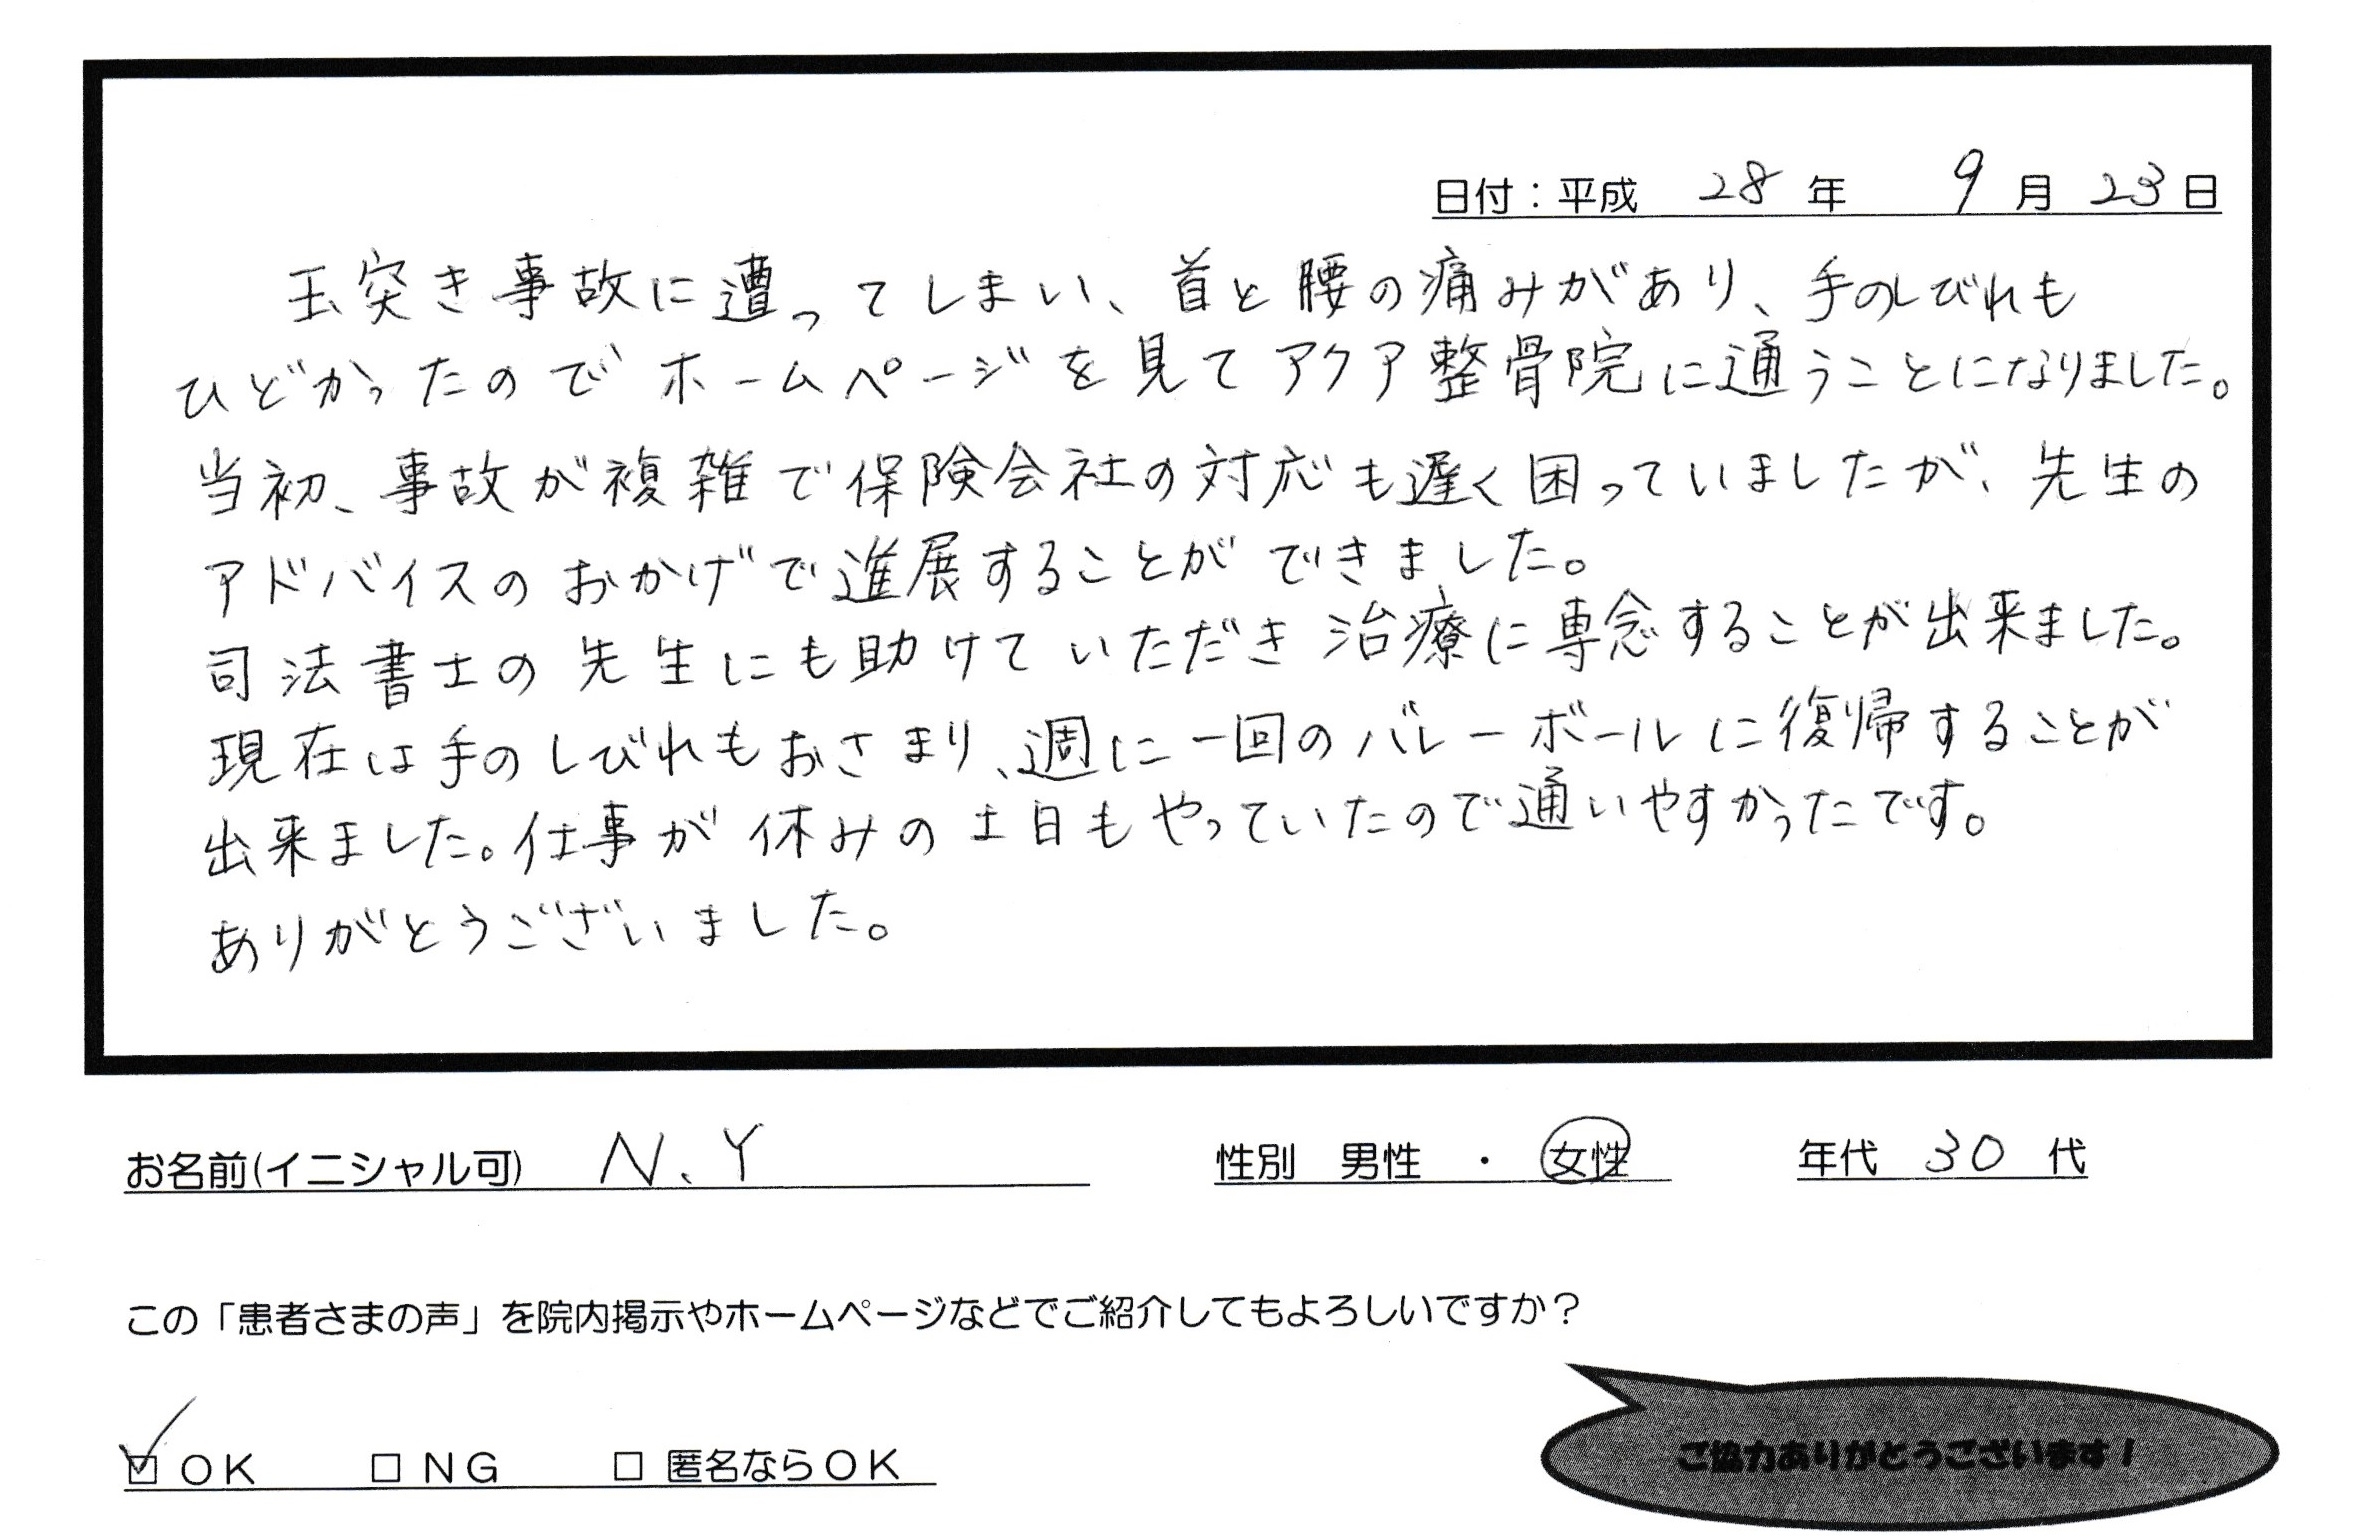 日付：平成 28 年 9 月 23 日
玉突き事故に遭ってしまい、首と腰の痛みがあり、手のしびれも
ひどかったのでホームページを見てアクア整骨院に通うことになりました。
当初、事故が複雑で保険会社の対応も遅く困っていましたが、先生の
アドバイスのおかげで進展することができました。
司法書士の先生にも助けていただき治療に専念することが出来ました。
現在は手のしびれもおさまり、週に一回のバレーボールに復帰することが
出来ました。仕事が休みの土日もやっていたので通いやすかったです。
ありがとうございました。
お名前(イニシャル可) N、Y 性別 男性 ・ 女性 年代 30 代
この「患者さまの声」を院内掲示やホームページなどでご紹介してもよろしいですか？
☑ＯＫ □ＮＧ □匿名ならＯＫ
ご協力ありがとうございます！